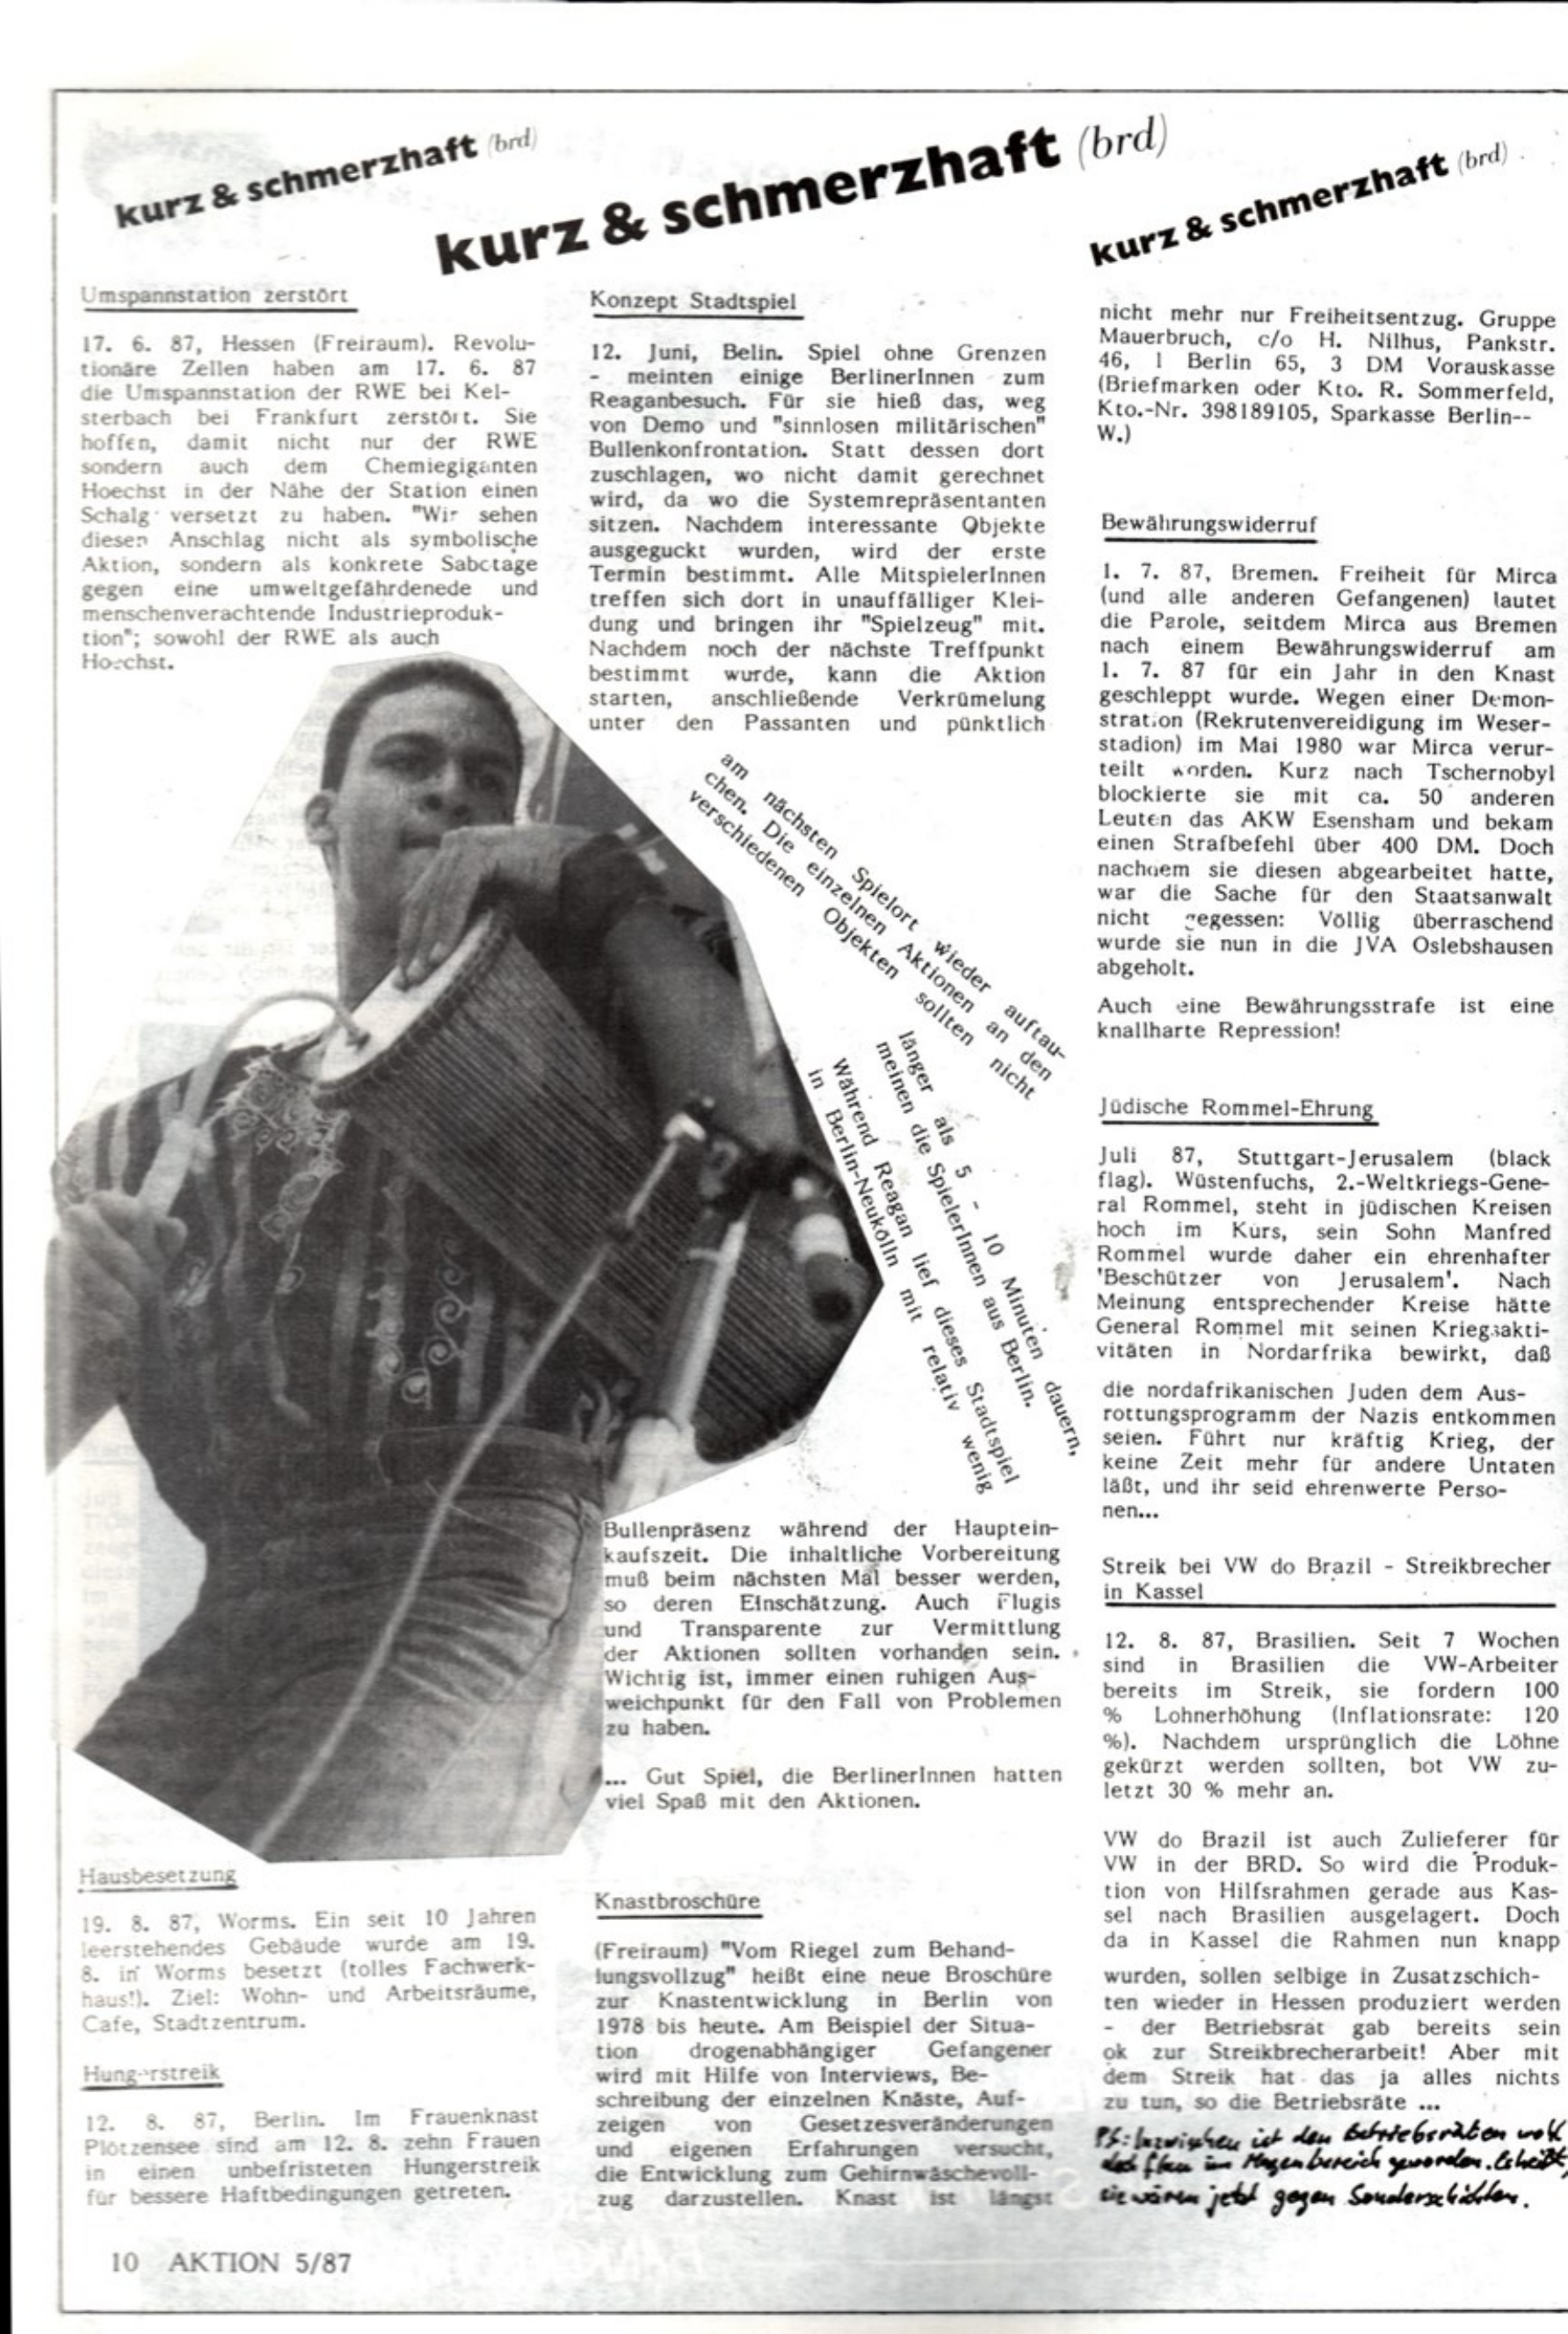 kurz & schmerzhaft (brd)
kurz & schmerzhaft (brd)
kurz & schmerzhaft (brd)
Umspannstation zerstört
17. 6. 87, Hessen (Freiraum). Revolu-
tionäre Zellen haben am 17. 6. 87
die Umspannstation der RWE bei Kel-
sterbach bei Frankfurt zerstört. Sie
hoffen, damit nicht nur der RWE
sondern auch dem Chemiegiganten
Hoechst in der Nähe der Station einen
Schalg versetzt zu haben. "Wir sehen
diesen Anschlag nicht als symbolische
Aktion, sondern als konkrete Sabotage
gegen eine umweltgefährdenede und
menschenverachtende Industrieproduk-
tion"; sowohl der RWE als auch
Hoechst.
Hausbesetzung
19. 8. 87, Worms. Ein seit 10 Jahren
leerstehendes Gebäude wurde am 19.
8. in Worms besetzt (tolles Fachwerk-
haus!). Ziel: Wohn- und Arbeitsräume,
Cafe, Stadtzentrum.
Hungerstreik
12. 8. 87, Berlin. Im Frauenknast
Plötzensee sind am 12. 8. zehn Frauen
in einen unbefristeten Hungerstreik
für bessere Haftbedingungen getreten.
Konzept Stadtspiel
12. Juni, Belin. Spiel ohne Grenzen
- meinten einige BerlinerInnen zum
Reaganbesuch. Für sie hieß das, weg
von Demo und "sinnlosen militärischen"
Bullenkonfrontation. Statt dessen dort
zuschlagen, wo nicht damit gerechnet
wird, da wo die Systemrepräsentanten
sitzen. Nachdem interessante Objekte
ausgeguckt wurden, wird der erste
Termin bestimmt. Alle MitspielerInnen
treffen sich dort in unauffälliger Klei-
dung und bringen ihr "Spielzeug" mit.
Nachdem noch der nächste Treffpunkt
bestimmt wurde, kann die Aktion
starten, anschließende Verkrümelung
unter den Passanten und pünktlich
am nächsten Spielort wieder auftau-
chen. Die einzelnen Aktionen an den
verschiedenen Objekten sollten nicht
länger als 5 - 10 Minuten dauern,
meinen die SpielerInnen aus Berlin.
Während Reagan lief dieses Stadtspiel
in Berlin-Neukölln mit relativ wenig
Bullenpräsenz während der Hauptein-
kaufszeit. Die inhaltliche Vorbereitung
muß beim nächsten Mal besser werden,
so deren EInschätzung. Auch Flugis
und Transparente zur Vermittlung
der Aktionen sollten vorhanden sein.
Wichtig ist, immer einen ruhigen Aus-
weichpunkt für den Fall von Problemen
zu haben.
... Gut Spiel, die BerlinerInnen hatten
viel Spaß mit den Aktionen.
Knastbroschüre
(Freiraum) "Vom Riegel zum Behand-
lungsvollzug" heißt eine neue Broschüre
zur Knastentwicklung in Berlin von
1978 bis heute. Am Beispiel der Situa-
tion drogenabhängiger Gefangener
wird mit Hilfe von Interviews, Be-
schreibung der einzelnen Knäste, Auf-
zeigen von Gesetzesveränderungen
und eigenen Erfahrungen versucht,
die Entwicklung zum Gehirnwäschevoll-
zug darzustellen. Knast ist längst
nicht mehr nur Freiheitsentzug. Gruppe
Mauerbruch, c/o H. Nilhus, Pankstr.
46, 1 Berlin 65, 3 DM Vorauskasse
(Briefmarken oder Kto. R. Sommerfeld,
Kto.-Nr. 398189105, Sparkasse Berlin--
W.)
Bewährungswiderruf
1. 7. 87, Bremen. Freiheit für Mirca
(und alle anderen Gefangenen) lautet
die Parole, seitdem Mirca aus Bremen
nach einem Bewährungswiderruf am
1. 7. 87 für ein Jahr in den Knast
geschleppt wurde. Wegen einer Demon-
stration (Rekrutenvereidigung im Weser-
stadion) im Mai 1980 war Mirca verur-
teilt worden. Kurz nach Tschernobyl
blockierte sie mit ca. 50 anderen
Leuten das AKW Esensham und bekam
einen Strafbefehl über 400 DM. Doch
nachdem sie diesen abgearbeitet hatte,
war die Sache für den Staatsanwalt
nicht gegessen: Völlig überraschend
wurde sie nun in die JVA Oslebshausen
abgeholt.
Auch eine Bewährungsstrafe ist eine
knallharte Repression!
Jüdische Rommel-Ehrung
Juli 87, Stuttgart-Jerusalem (black
flag). Wüstenfuchs, 2.-Weltkriegs-Gene-
ral Rommel, steht in jüdischen Kreisen
hoch im Kurs, sein Sohn Manfred
Rommel wurde daher ein ehrenhafter
'Beschützer von Jerusalem'. Nach
Meinung entsprechender Kreise hätte
General Rommel mit seinen Kriegsakti-
vitäten in Nordarfrika bewirkt, daß
die nordafrikanischen Juden dem Aus-
rottungsprogramm der Nazis entkommen
seien. Führt nur kräftig Krieg, der
keine Zeit mehr für andere Untaten
läßt, und ihr seid ehrenwerte Perso-
nen...
Streik bei VW do Brazil - Streikbrecher
in Kassel
12. 8. 87, Brasilien. Seit 7 Wochen
sind in Brasilien die VW-Arbeiter
bereits im Streik, sie fordern 100
% Lohnerhöhung (Inflationsrate: 120
%). Nachdem ursprünglich die Löhne
gekürzt werden sollten, bot VW zu-
letzt 30 % mehr an.
VW do Brazil ist auch Zulieferer für
VW in der BRD. So wird die Produk-
tion von Hilfsrahmen gerade aus Kas-
sel nach Brasilien ausgelagert. Doch
da in Kassel die Rahmen nun knapp
wurden, sollen selbige in Zusatzschich-
ten wieder in Hessen produziert werden
- der Betriebsrat gab bereits sein
ok zur Streikbrecherarbeit! Aber mit
dem Streik hat das ja alles nichts
zu tun, so die Betriebsräte ...
PS: Inzwischen ist den Betriebsräten wohl
im Magenbereich geworden.
sie wären jetzt gegen Sonderschichten.
10 AKTION 5/87